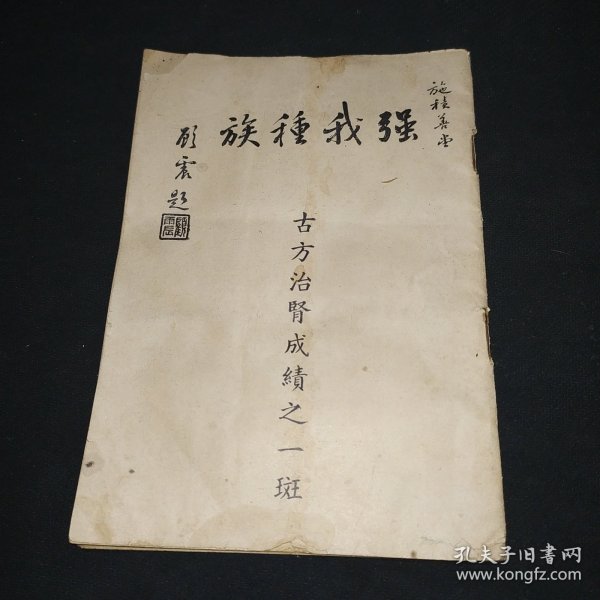 施積善堂
强我種族
古方治腎成績之一斑
顧震題
孔夫子旧書网
www.kongfz.com